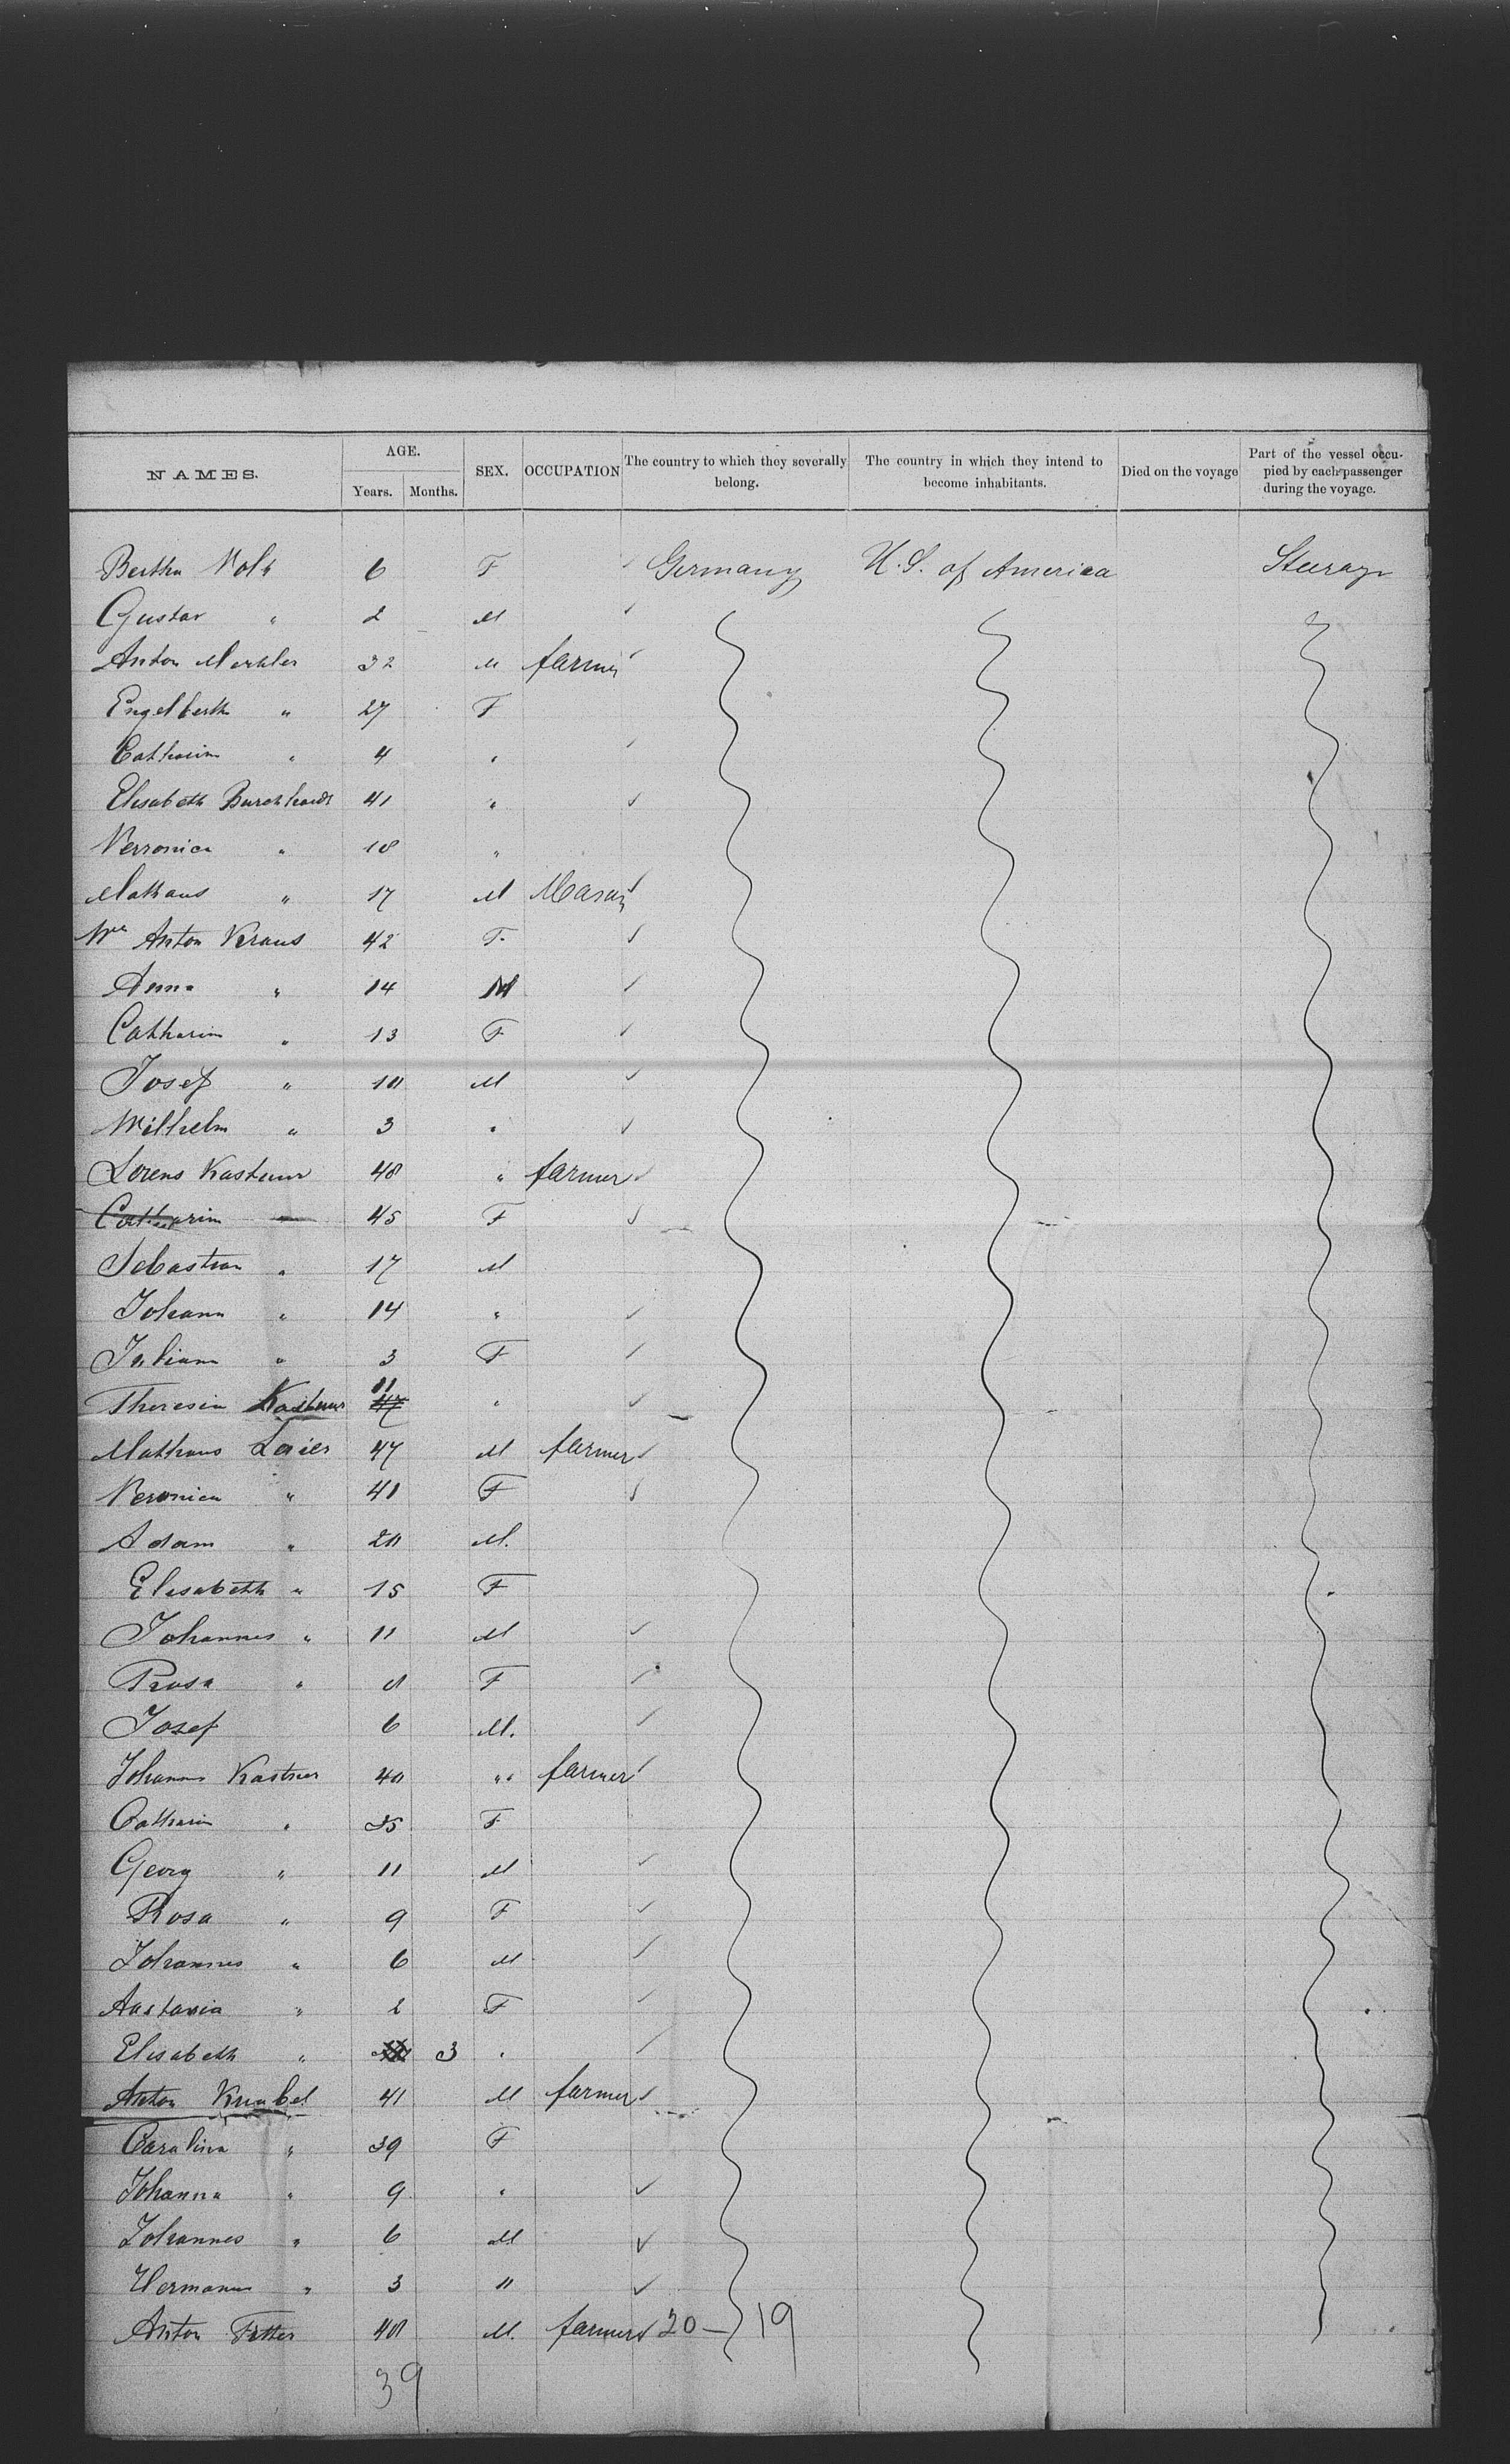 NAMES. AGE. SEX. OCCUPATION The country to which they severally belong. The country in which they intend to become inhabitants. Died on the voyage Part of the vessel occupied by each passenger during the voyage.
Years. Months.
Bertha 6 F Germany U.S. of America Steerage
Gustav " 2 M
Anton 32 M farmer
Engelberth " 27 F
Catharin " 4 "
Elisabeth Burckhardt 41 "
Verronica " 18 "
Mathaus " 17 M Mason
Anton Kraus 42 F
Anna " 14 M
Catharin " 13 F
Josef " 10 M
Wilhelm " 3 "
Lorens Kastner 48 " farmer
Catharin 45 F
Sebastian " 17 M
Johann " 14 "
Juliana " 3 F
Theresia Kastner 11 "
Mathaus 47 M farmer
Veronica " 41 F
Adam " 20 M.
Elisabeth " 15 F
Johannes " 11 M
Rosa " F
Josef 6 M.
Johannes Kastner 40 " farmer
Catharin " 35 F
Georg " 11 M
Rosa " 9 F
Johannes " 6 M
" 2 F
Elisabeth " 3 "
Anton Knabel 41 M farmer
Carolina " 39 F
Johanna " 9 "
Johannes " 6 M
Hermann " 3 "
Anton 40 M. farmer 20 – 19
39